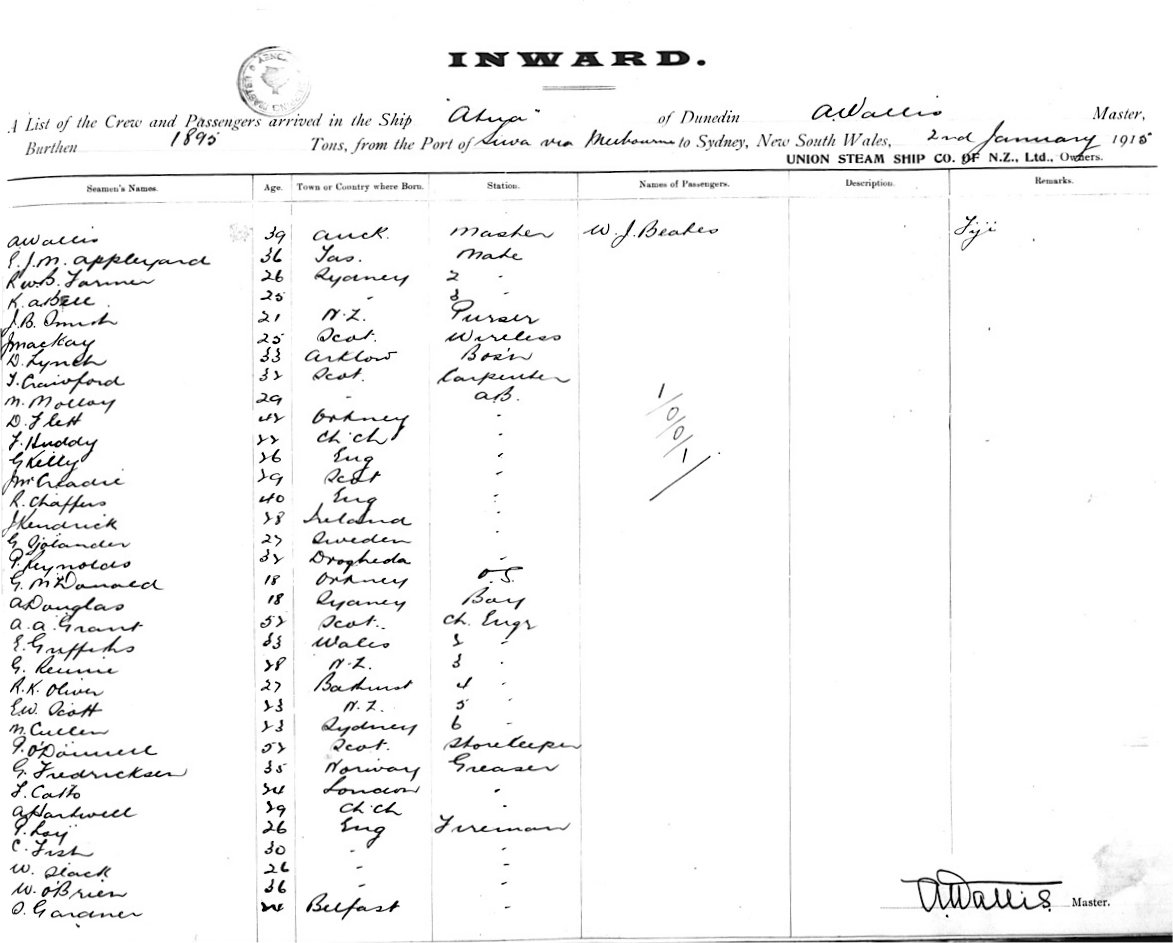 INWARD.
A List of the Crew and Passengers arrived in the Ship "Atua" of Dunedin AWallis Master,
Burthen 1895 Tons, from the Port of Suva via Melbourne to Sydney, New South Wales, 2nd January 1915
UNION STEAM SHIP CO. OF N.Z., Ltd., Owners.
Seamen's Names. Age. Town or Country where Born. Station. Names of Passengers. Description. Remarks.
AWallis 39 Auck. Master W. J. Beakes Fiji
J. M. Appleyard 36 Tas. Mate
R W B. Farmer 26 Sydney 2 "
K. A Bell 25 " 3 "
J. B. Smith 21 N.Z. Purser
J Mackay 25 Scot. Wireless
D. Lynch 33 Arklow Bos'n
T. Crawford 32 Scot. Carpenter
M. Molloy 29 " A.B.
D. Flett 42 Orkney "
F. Huddy 22 Ch'ch "
G Kelly 26 Eng "
J McCreadie 29 Scot "
R. Chaffers 40 Eng "
J Kendrick 28 Ireland "
G. Sjolander 27 Sweden "
P. Reynolds 32 Drogheda "
G. McDonald 18 Orkney O.S.
A Douglas 18 Sydney Boy
A. A. Grant 52 Scot. Ch. Engr
E. Griffiths 33 Wales 2 "
G. Rennie 28 N.Z. 3 "
R. K. Oliver 27 Bathurst 4 "
E.W. Scott 23 N.Z. 5 "
M. Cullen 23 Sydney 6 "
P. O'Donnell 52 Scot. Storekeeper
G. Fredricksen 35 Norway Greaser
F. Catto 24 London "
A Hartwell 29 Ch'ch "
26 Eng Fireman
C. Fish 30 " "
W. Slack 26 " "
W. O'Brien 36 " "
Gardner 24 Belfast "
1/0/0/1/
AWallis. Master.